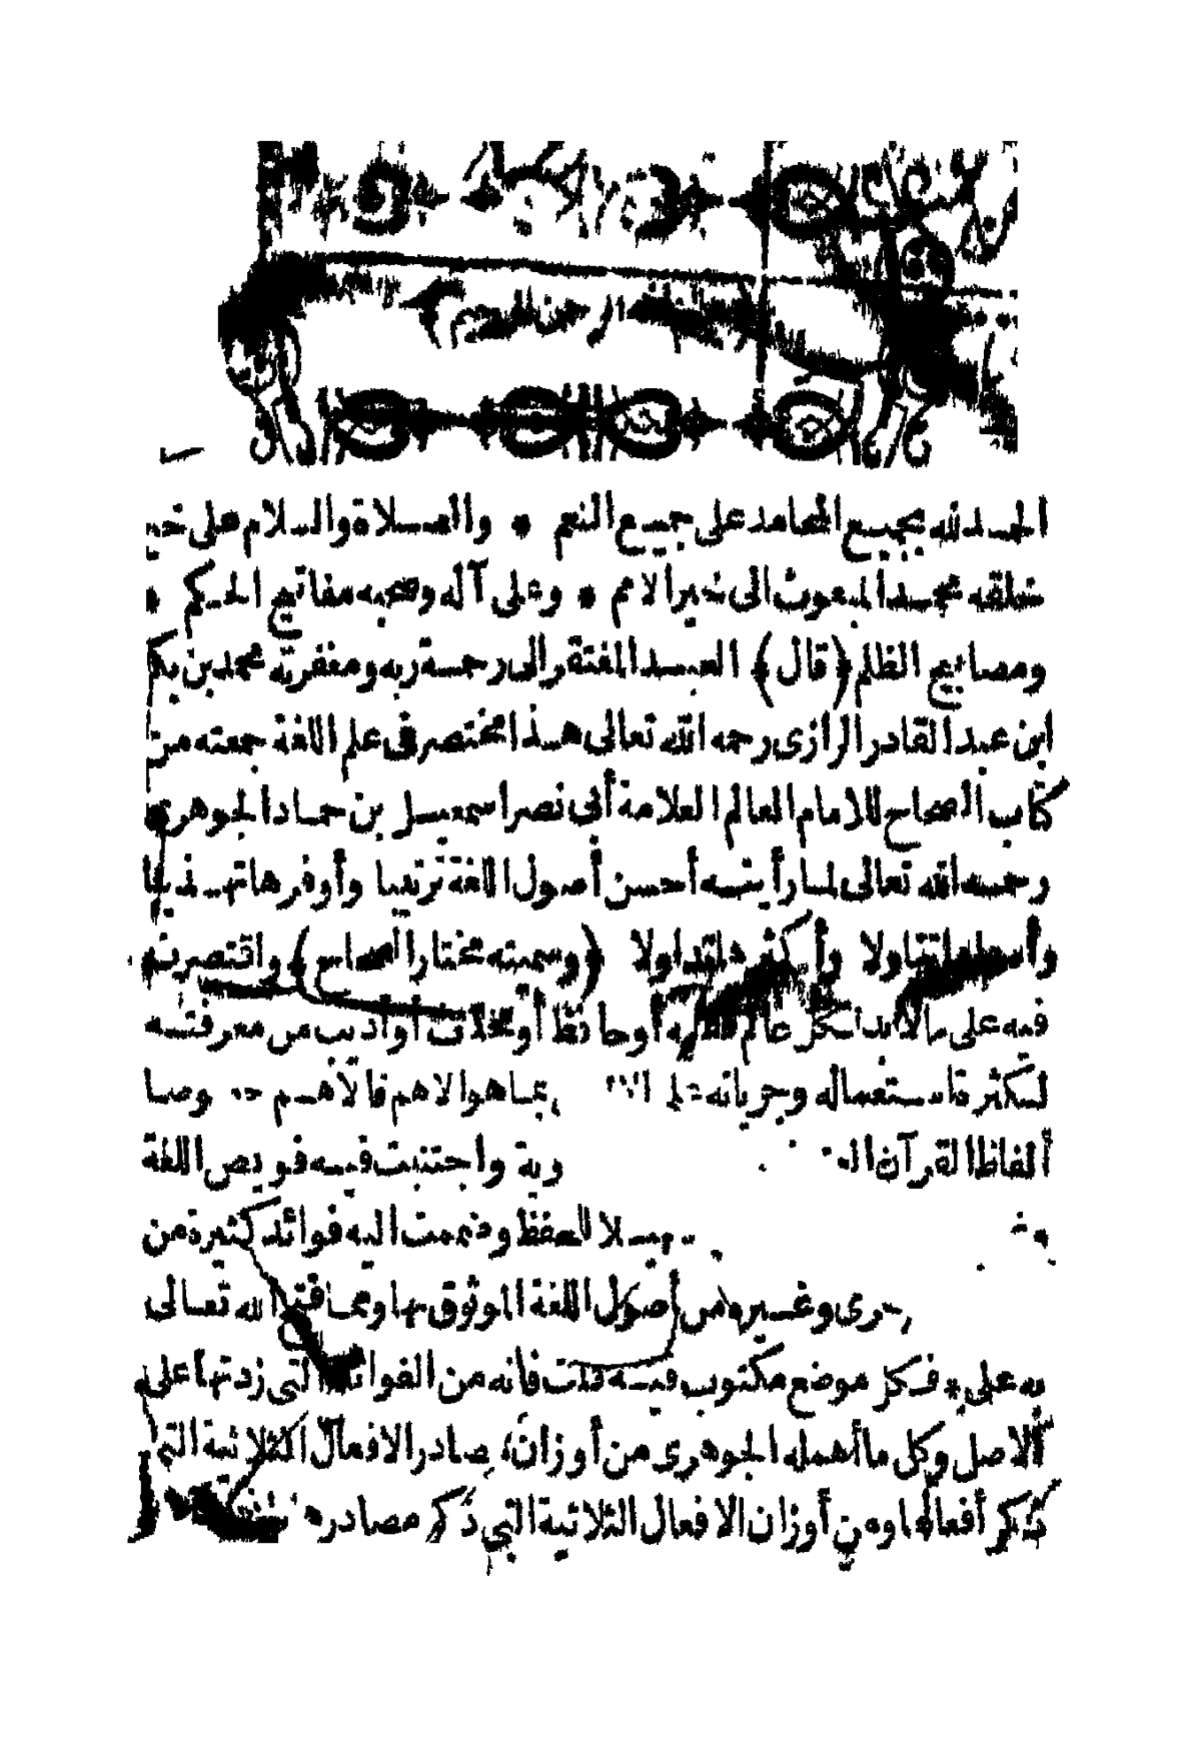 بسم الله الرحمن الرحيم
الحمد لله بجميع المحامد على جميع النعم * والصلاة والسلام على خير
خلقه محمد المبعوث الى خير الامم * وعلى آله وصحبه مفاتيح الحكم *
ومصابيح الظلم (قال) العبد المفتقر الى رحمة ربه ومغفرته محمد بن بكر
ابن عبد القادر الرازى رحمه الله تعالى هذا مختصر فى علم اللغة جمعته من
كتاب الصحاح للامام العالم العلامة أبى نصر اسمعيل بن حماد الجوهرى
رحمه الله تعالى لما رأيته أحسن أصول اللغة ترتيبا وأوفرها تهذيبا
وأسهلها تناولا وأكثرها تداولا (وسميته مختار الصحاح) واقتصرت
فيه على مالا بد لكل عالم أوحافظ أومحدث أوأديب من معرفته
لكثرة استعماله وجريانه بما هو الاهم فالاهم
ألفاظ القرآن واجتنبت فيه عويص اللغة
للحفظ وضممت اليه فوائد كثيرة من
وغيره من أصول اللغة الموثوق بها ومما فتح الله تعالى
به على * فكل موضع مكتوب فيه قلت فانه من الفوائد التى زدتها على
الاصل وكل ما أهمله الجوهرى من أوزان مصادر الافعال الثلاثية التى
ذكر أفعالها ومن أوزان الافعال الثلاثية التى ذكر مصادرها